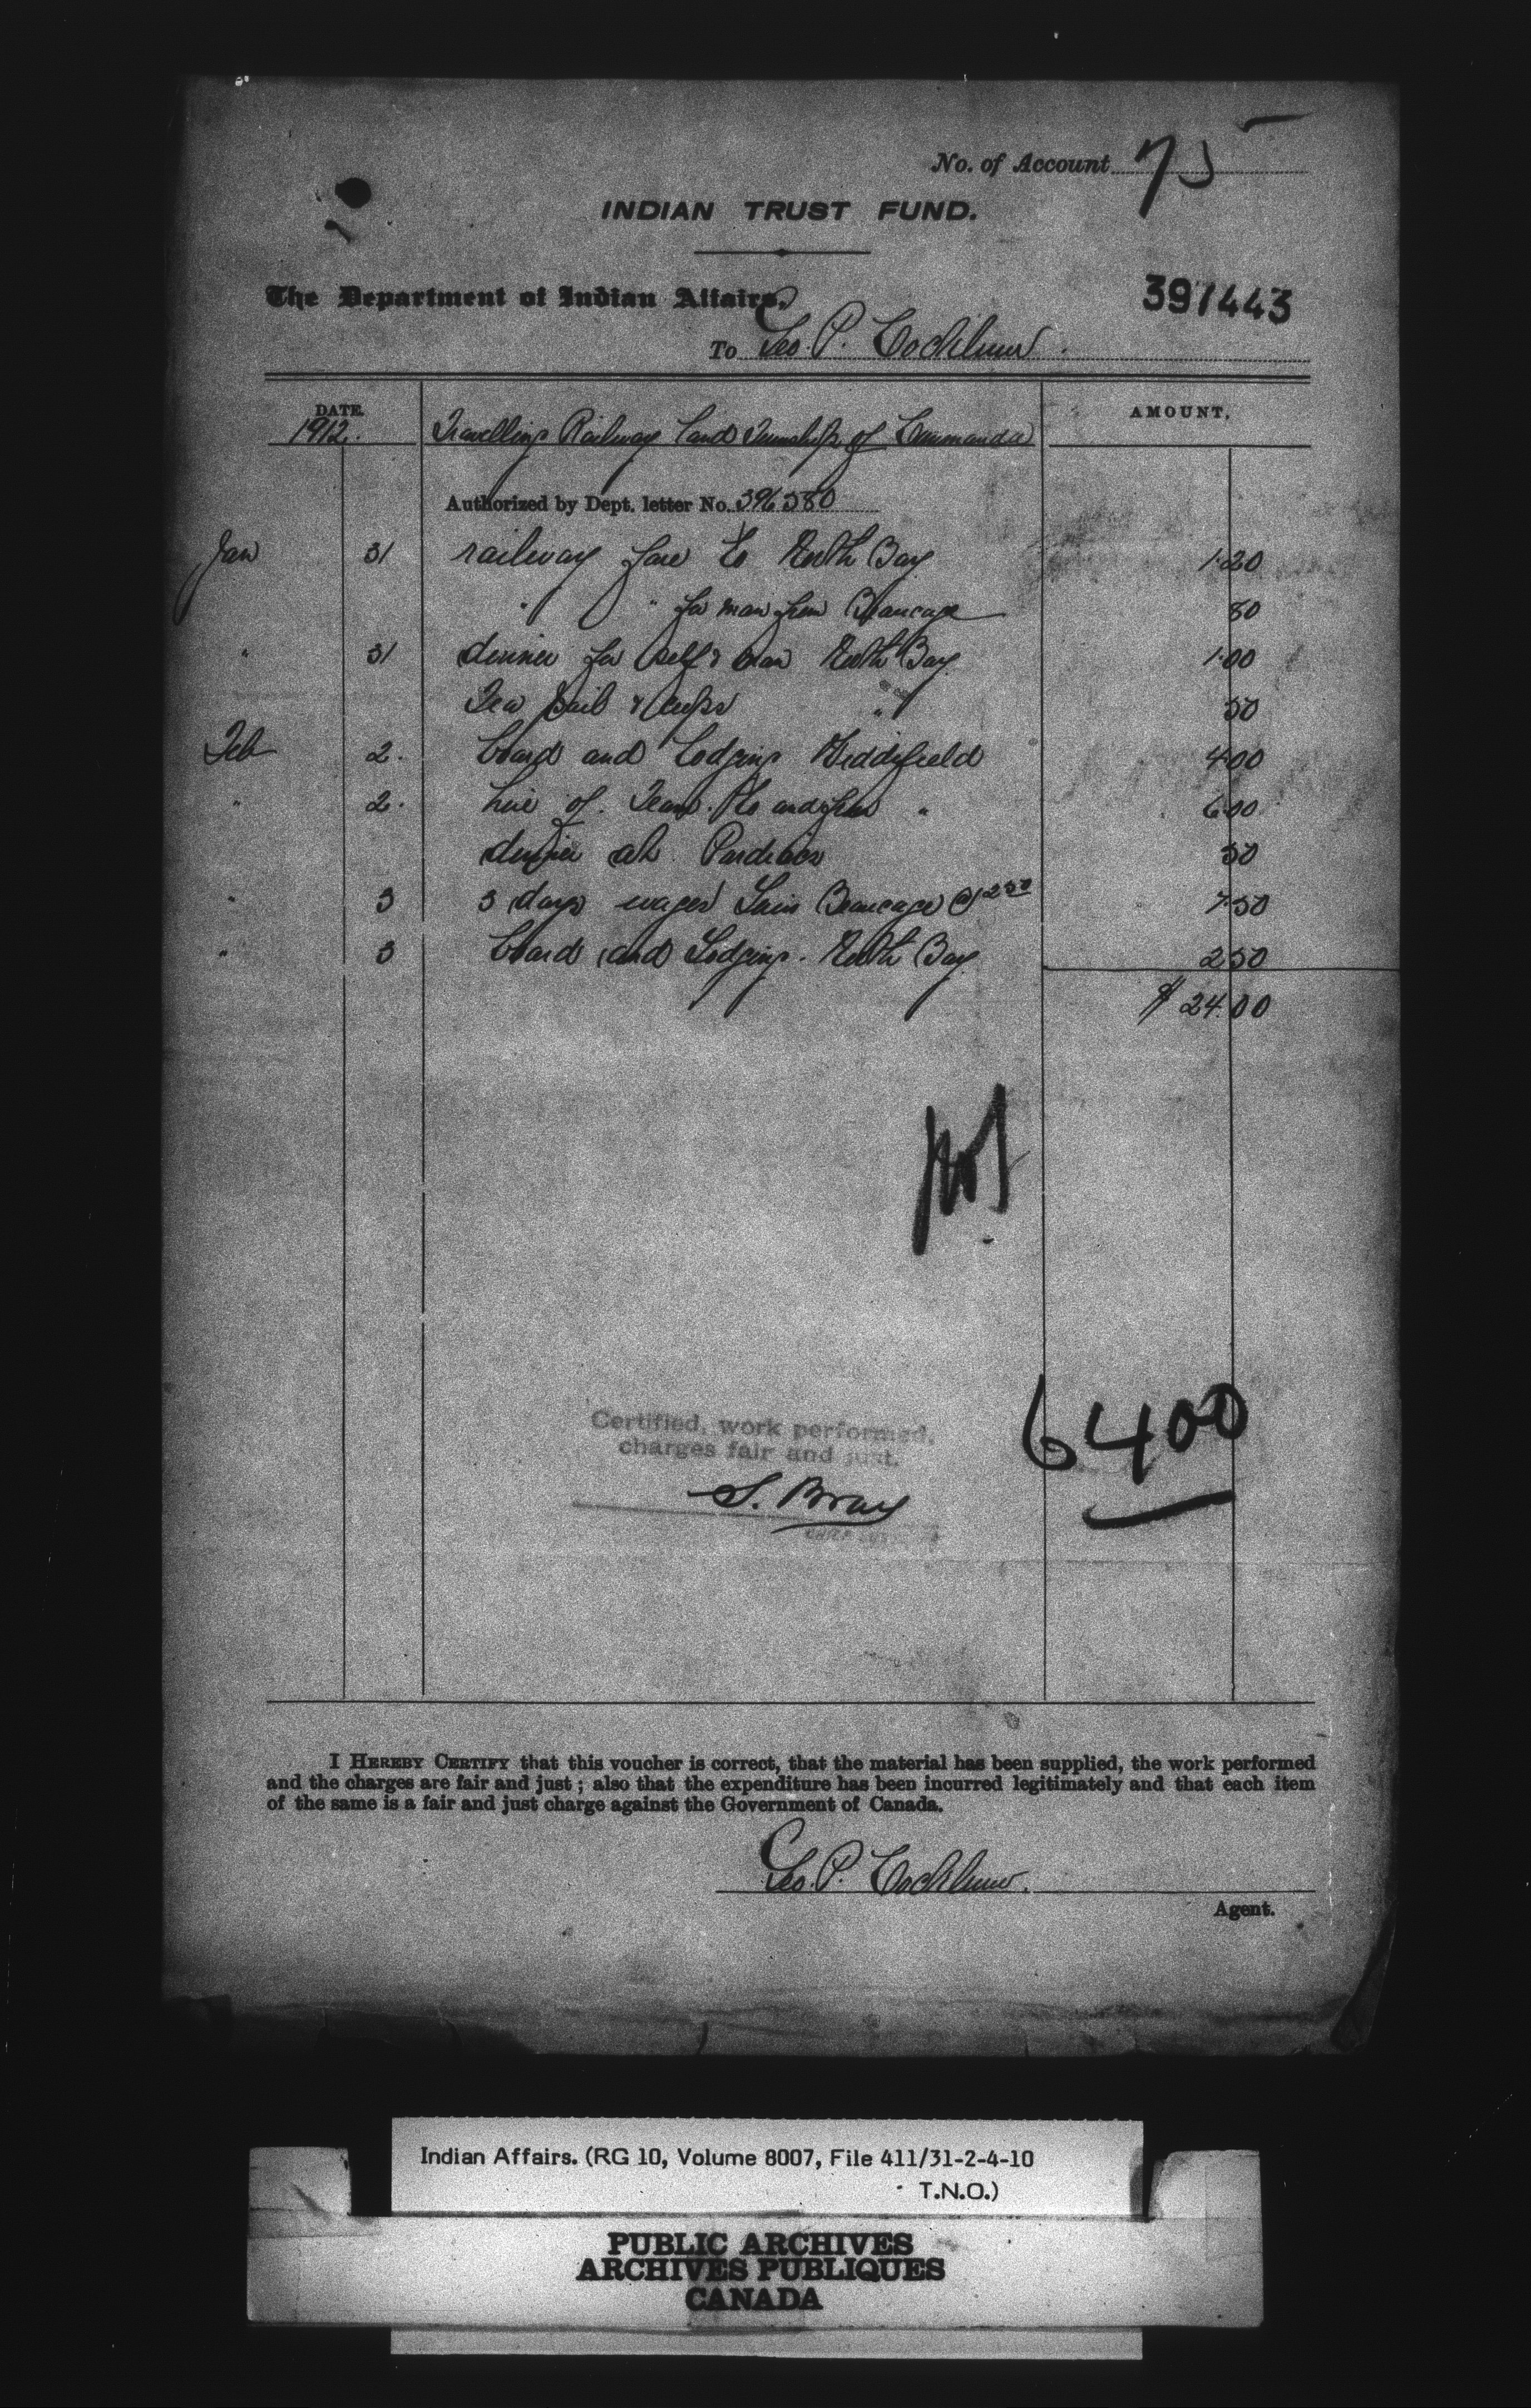 No. of Account 75
INDIAN TRUST FUND.
The Department of Indian Affairs,
397443
To Geo. P. Cockburn.
DATE. AMOUNT.
1912. Travelling Railway Land Township of Commanda
Authorized by Dept. letter No. 396380
Jan 31 railway fare to North Bay 1.20
" " for man from Beaucage 80
" 31 dinner for self & man North Bay 1.00
Tea pail & cups " 50
Feb 2. board and Lodging Widdifield 4.00
" 2. hire of Team to and from " 6.00
dinner at 50
" 3 3 days wages Beaucage @ 2 50 7.50
" 3 board and Lodging. North Bay 2 50
$ 24.00
6400
Certified, work performed,
charges fair and just.
S. Bray
I HEREBY CERTIFY that this voucher is correct, that the material has been supplied, the work performed
and the charges are fair and just ; also that the expenditure has been incurred legitimately and that each item
of the same is a fair and just charge against the Government of Canada.
Geo. P. Cockburn.
Agent.
Indian Affairs. (RG 10, Volume 8007, File 411/31-2-4-10
T.N.O.)
PUBLIC ARCHIVES
ARCHIVES PUBLIQUES
CANADA